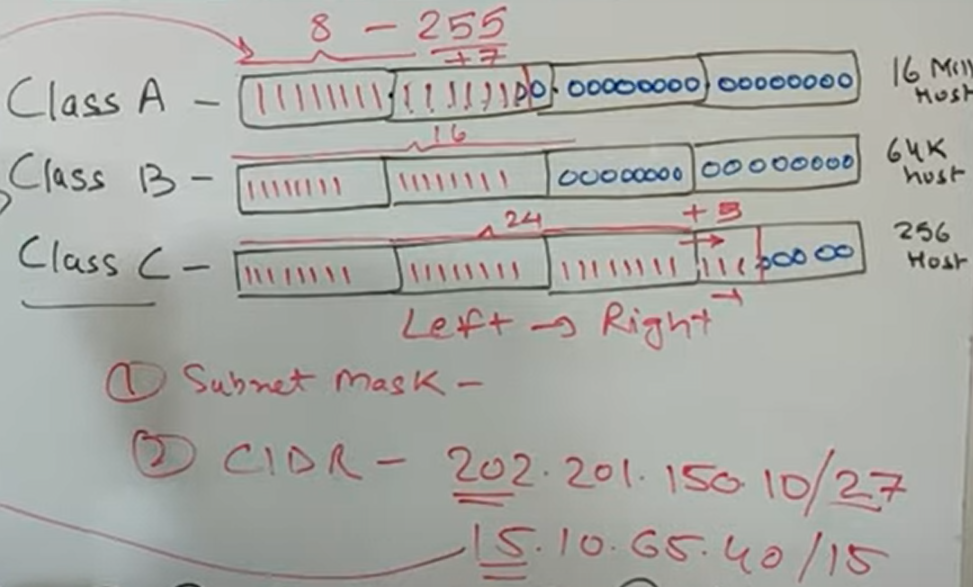 8 - 255
+7
Class A - 11111111 11111110 00000000 00000000 16 Mill Host
16
Class B - 11111111 11111111 00000000 00000000 64K host
24 + 3
Class C - 11111111 11111111 11111111 11100000 256 Host
Left → Right →
① Subnet Mask -
② CIDR - 202.201.150.10/27
15.10.65.40/15